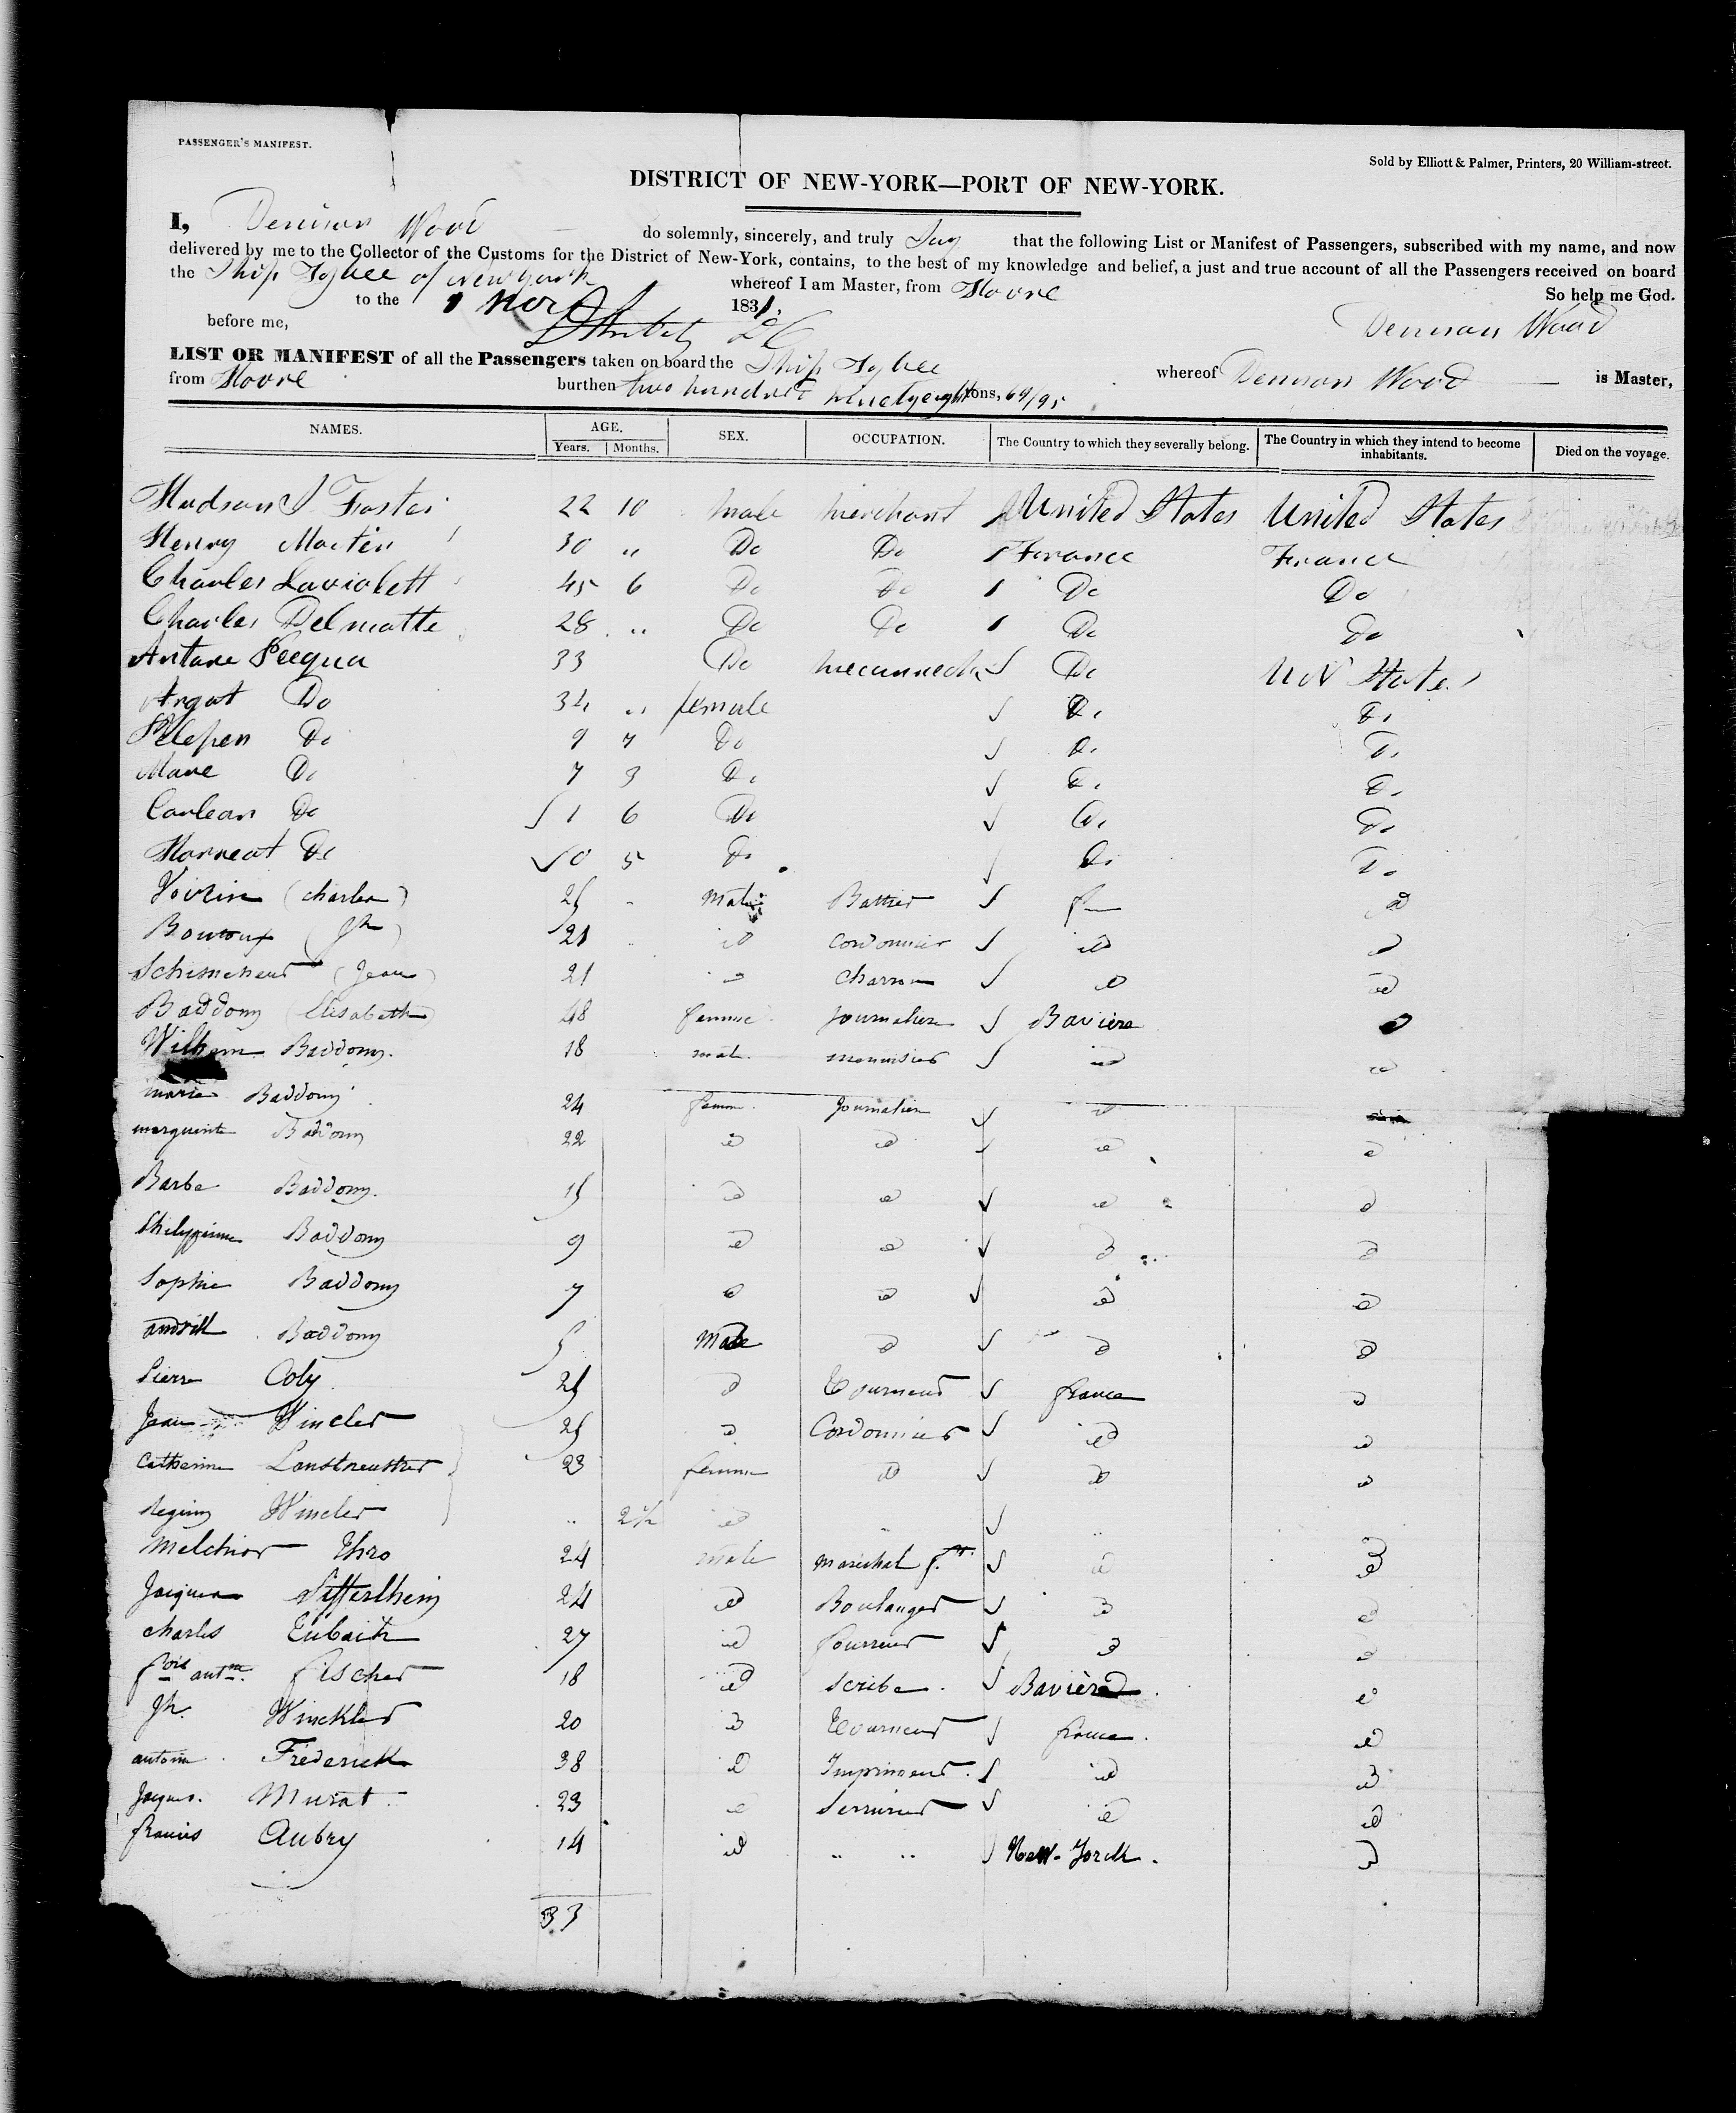 PASSENGER'S MANIFEST.
Sold by Elliott & Palmer, Printers, 20 William-street.
DISTRICT OF NEW-YORK—PORT OF NEW-YORK.
I, Denison Wood do solemnly, sincerely, and truly Say that the following List or Manifest of Passengers, subscribed with my name, and now
delivered by me to the Collector of the Customs for the District of New-York, contains, to the best of my knowledge and belief, a just and true account of all the Passengers received on board
the Ship Sybee of New York whereof I am Master, from Havre
to the 1 Nov 1831. So help me God.
before me, Denison Wood
LIST OR MANIFEST of all the Passengers taken on board the Ship Sybee whereof Denison Wood is Master,
from Havre burthen two hundred ninety eight tons, 69/95
NAMES. AGE. Years. Months. SEX. OCCUPATION. The Country to which they severally belong. The Country in which they intend to become inhabitants. Died on the voyage.
Hudson Foster 22 10 male merchant United States United States
Henry Martin 30 " Do Do France France
Charles Laviolett 45 6 Do Do Do Do
Charles Delmatte 28 " Do Do Do Do
33 Do Do States
Do 34 " female Do Do
Do 9 7 Do Do Do
Do 7 3 Do Do Do
Do 1 6 Do Do Do
Do 0 5 Do Do Do
Voirin (Charles) 25 male f id
(Jh) 21 id Cordonnier id id
(Jean) 21 id id id
Baddomy (Elisabeth) 48 femme Journaliere Baviere id
Wilhem Baddomy. 18 male menuisier id id
Marie Baddomy 24 femme Journaliere id
marguerite Baddomy 22 id id id id
Barbe Baddomy. 15 id id id id
Philippine Baddomy 9 id id id id
Sophie Baddomy 7 id id id id
Baddomy 5 Male id id id
Pierre Coly 25 id Tourneur france id
Jean Wincler 25 id Cordonnier id id
Catherine 23 femme id id id
Wincler " 2½ id " "
Melchior Ehro 24 male marechal ft. id id
Jacques Sifferlhein 24 id Boulanger id id
Charles 27 id id id
fois antne. fischer 18 id Scribe. Bavière id
Jh. Winckler 20 id Tourneur france. id
antoine Frederick 38 id Imprimeur. id id
Jacques. Murat 23 id Serrurier id id
francis Aubry 14 id " " New-Yorck. id
33